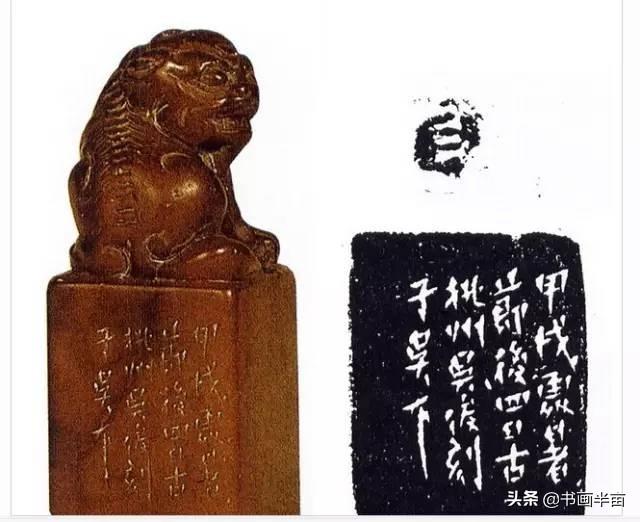 甲戌處暑
節後四日古
桃州吳俊刻
于吳下
甲戌處暑
節後四日古
桃州吳俊刻
于吳下
头条 @书画半亩